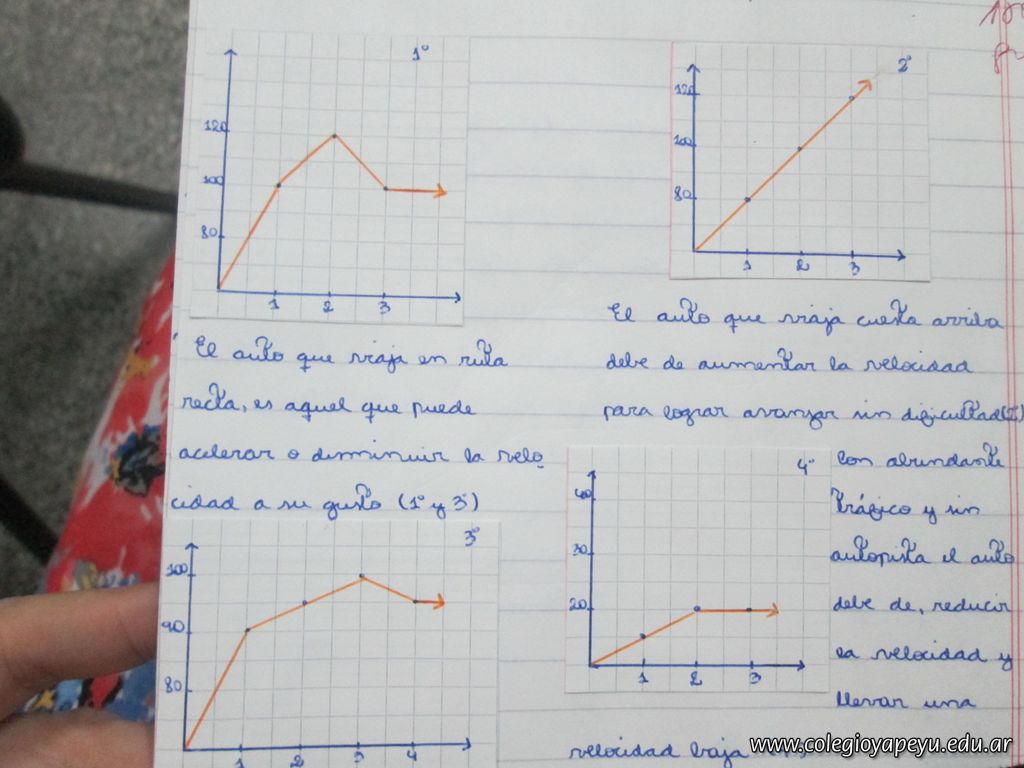 1º
120
100
80
1 2 3
El auto que viaja en ruta
recta, es aquel que puede
acelerar o disminuir la velo
cidad a su gusto (1º y 3º)
3º
100
90
80
1 2 3 4
2º
120
100
80
1 2 3
El auto que viaja cuesta arriba
debe de aumentar la velocidad
para lograr avanzar sin dificultad
4º
40
30
20
1 2 3
Con abundante
tráfico y sin
autopista el auto
debe de, reducir
la velocidad y
llevar una
velocidad baja
www.colegioyapeyu.edu.ar